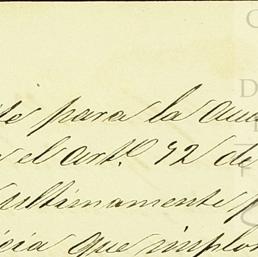 te para la aue
el artº. 92 de
ultimamente p
icia que implor